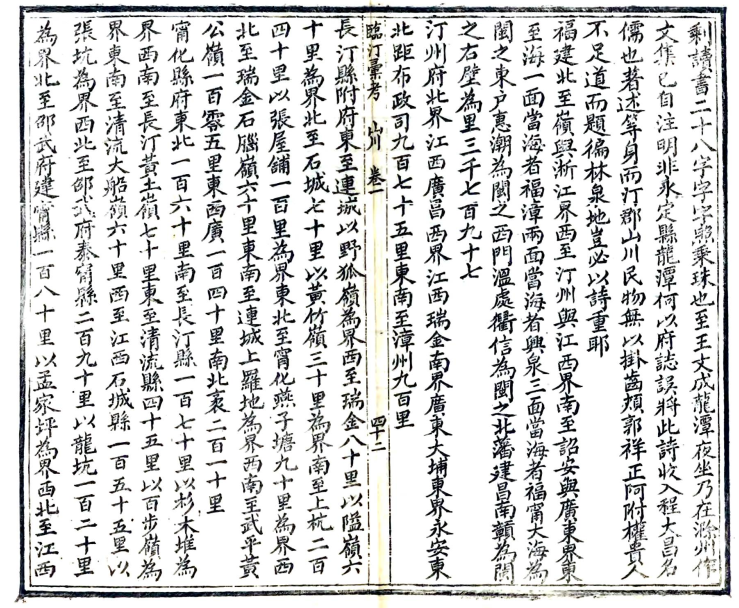 剩讀書二十八字字字照乘珠也至王文成龍潭夜坐乃在滁州作
文集已自注明非永定縣龍潭何以府誌誤將此詩收入程大昌名
儒也著述等身而汀郡山川民物無以掛齒頰郭祥正阿附權貴人
不足道而題徧林泉地豈必以詩重耶
福建北至嶺與浙江界西至汀州與江西界南至詔安與廣東界東
至海一面當海者福漳兩面當海者興泉三面當海者福甯大海為
閩之東戶惠潮為閩之西門溫處衢信為閩之北藩建昌南贛為閩
之右壁為里三千七百九十七
汀州府北界江西廣昌西界江西瑞金南界廣東大埔東界永安東
北距布政司九百七十五里東南至漳州九百里
臨汀彙考 山川 卷一 四十二
長汀縣附府東至連城以野狐嶺為界西至瑞金八十里以隘嶺六
十里為界北至石城七十里以黃竹嶺三十里為界南至上杭二百
四十里以張屋舖一百里為界東北至甯化燕子塘九十里為界西
北至瑞金石腦嶺六十里東南至連城上羅地為界西南至武平黃
公嶺一百零五里東西廣一百四十里南北袤二百一十里
甯化縣府東北一百六十里南至長汀縣一百七十里以杉木堆為
界西南至長汀黃土嶺七十里東至清流縣四十五里以百步嶺為
界東南至清流大船嶺六十里西至江西石城縣一百五十五里以
張坑為界西北至邵武府泰甯縣二百九十里以龍坑一百二十里
為界北至邵武府建甯縣一百八十里以孟家坪為界西北至江西